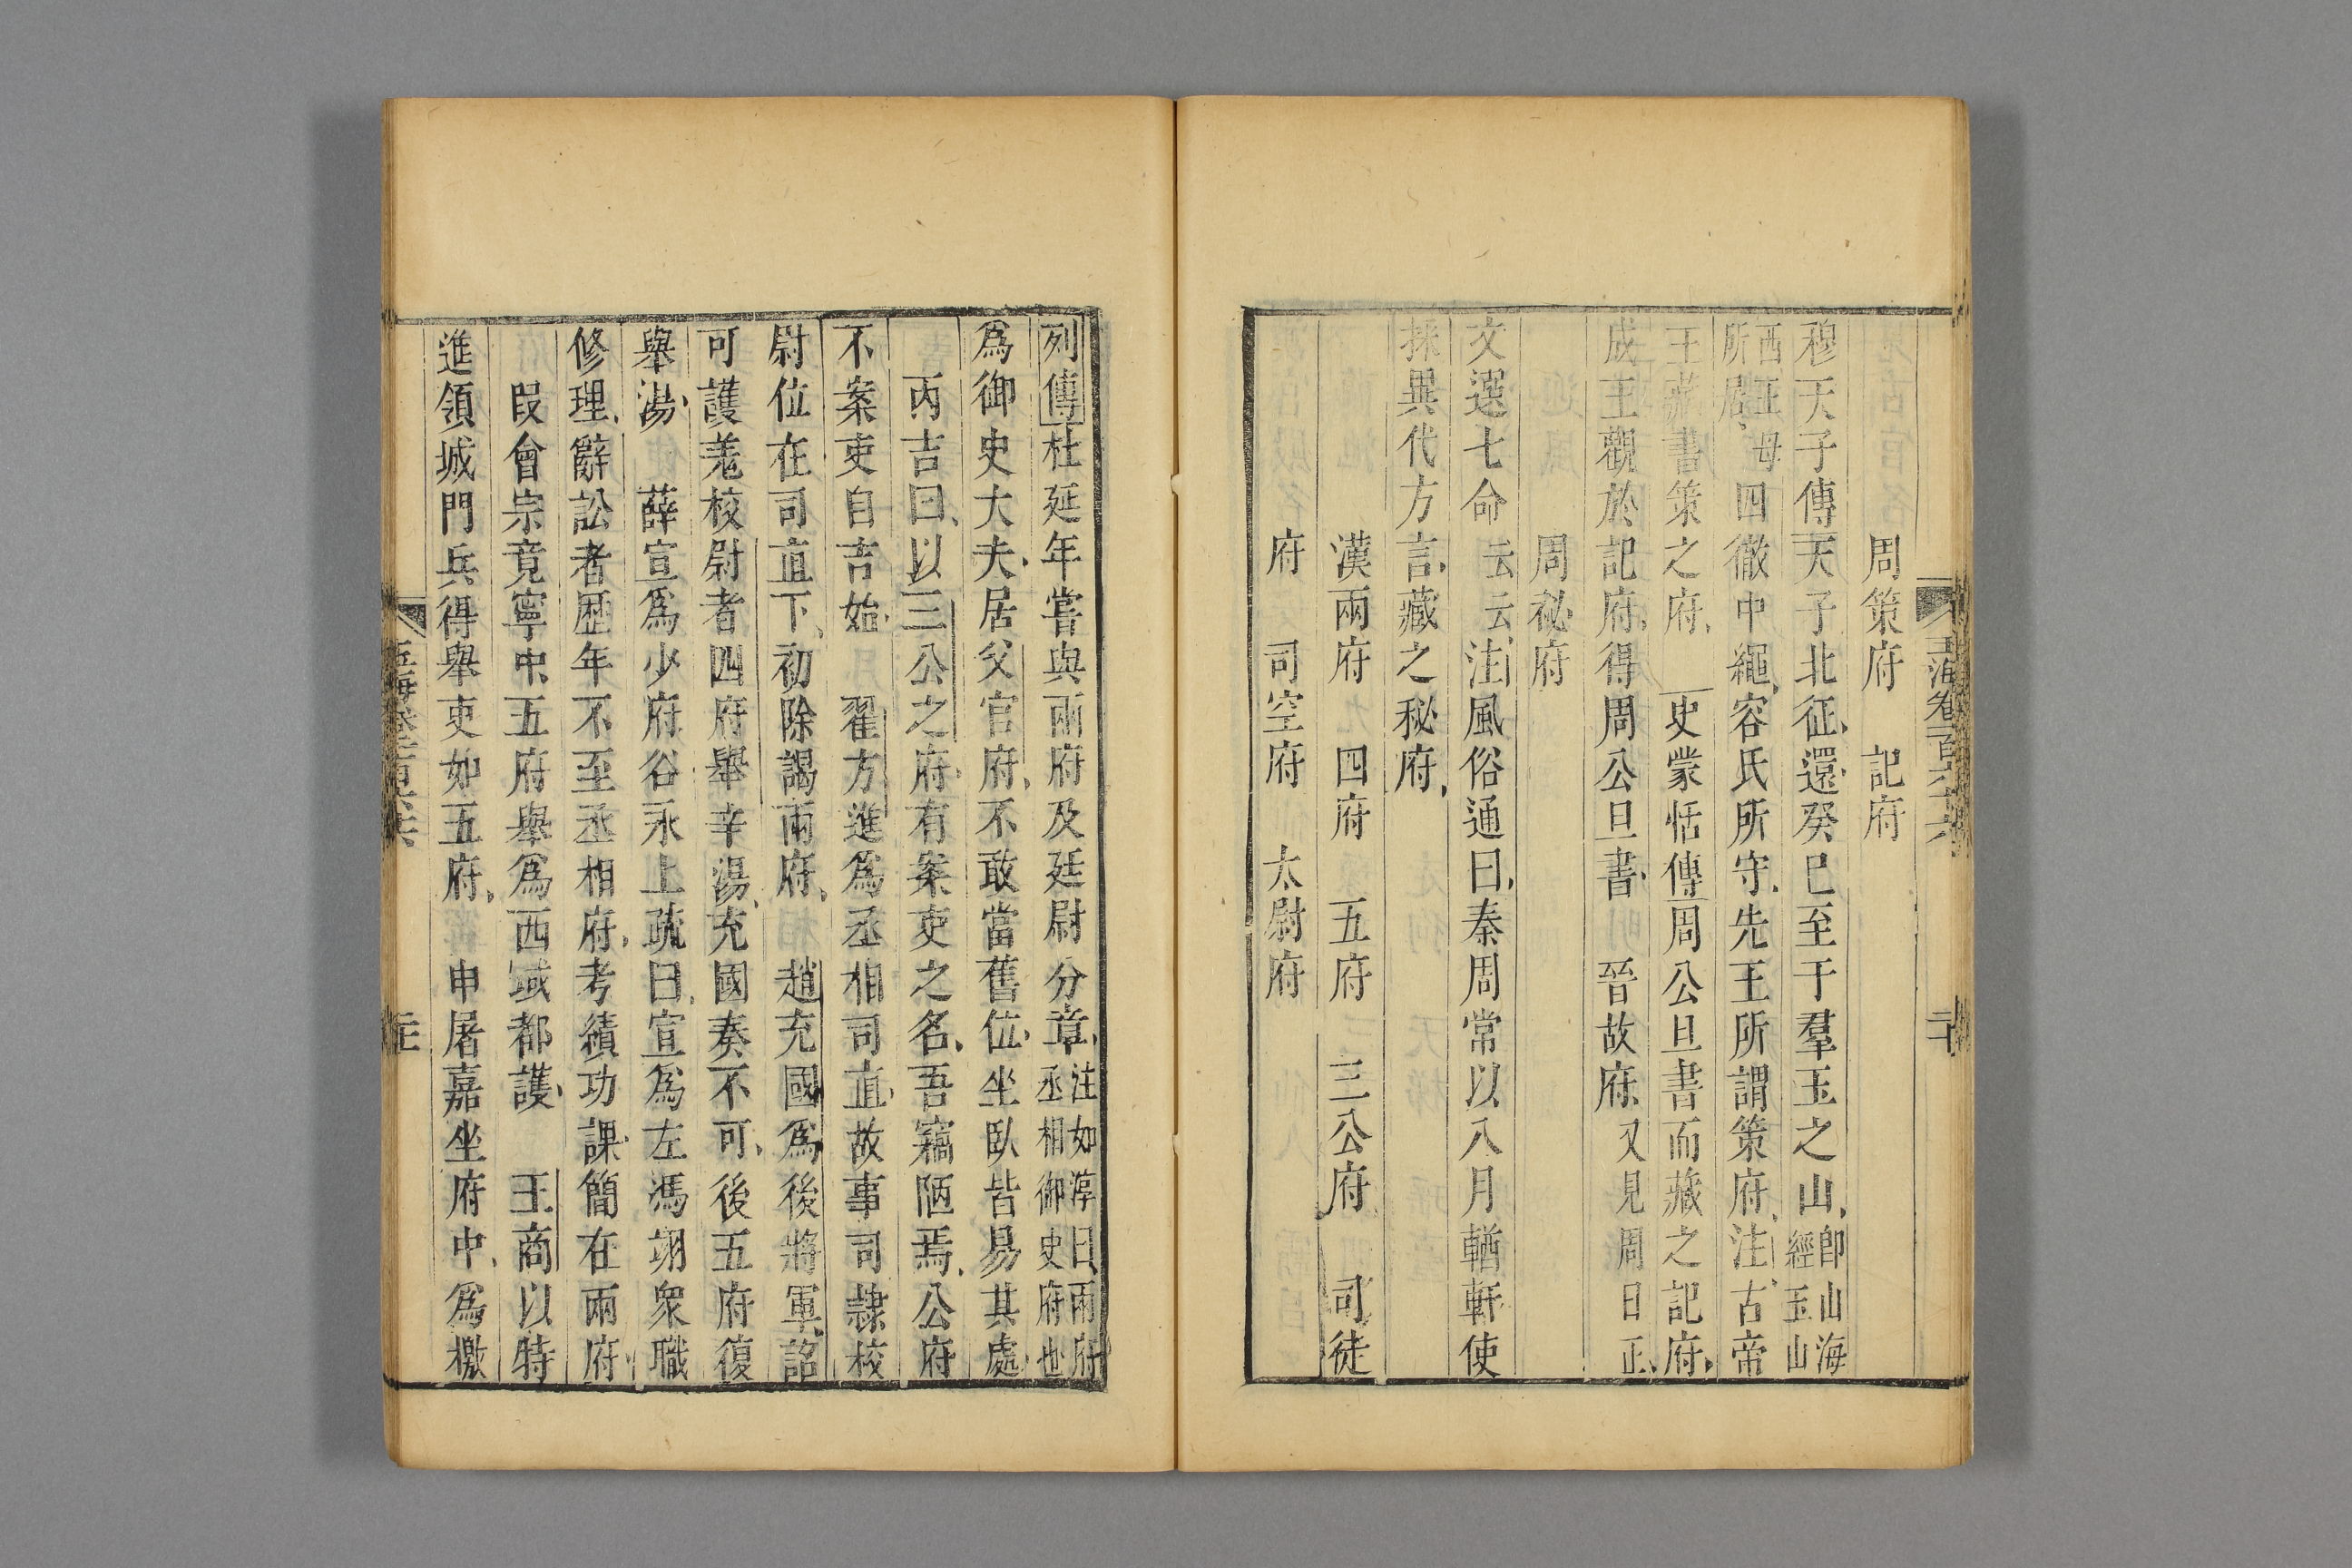 玉海卷一百六十六 二十
周策府 記府
穆天子傳天子北征還癸巳至于羣玉之山即山海經玉山
西王母所居四徹中繩容氏所守先王所謂策府注古帝
王藏書策之府 史蒙恬傳周公旦書而藏之記府
成王觀於記府得周公旦書 晉故府又見周日正
周秘府
文選七命云云注風俗通曰秦周常以八月輶軒使
採異代方言藏之秘府
漢兩府 四府 五府 三公府 司徒
府 司空府 太尉府
列傳杜延年嘗與兩府及廷尉分章注如淳曰兩府丞相御史府也
爲御史大夫居父官府不敢當舊位坐臥皆易其處
丙吉曰以三公之府有案吏之名吾竊陋焉公府
不案吏自吉始 翟方進爲丞相司直故事司隸校
尉位在司直下初除謁兩府 趙充國爲後將軍詔
可護羌校尉者四府舉辛湯充國奏不可後五府復
舉湯 薛宣爲少府谷永上疏曰宣爲左馮翊衆職
修理辭訟者歷年不至丞相府考績功課簡在兩府
段會宗竟寧中五府舉爲西域都護 王商以特
進領城門兵得舉吏如五府 申屠嘉坐府中爲檄